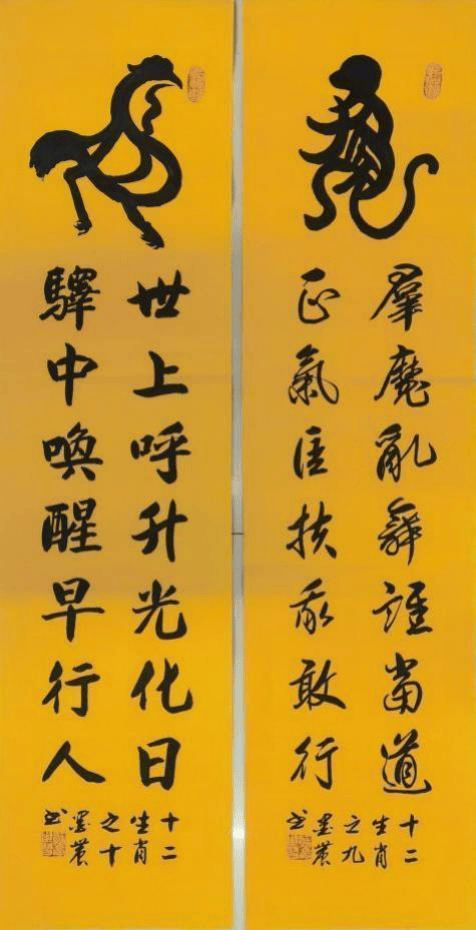 羣魔亂舞誰當道
正氣匡扶我敢行
十二
生肖
之九
墨農
书
世上呼升光化日
驛中喚醒早行人
十二
生肖
之十
墨農
书